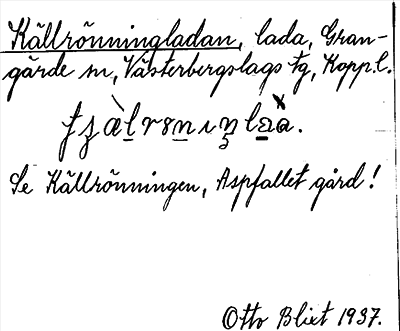 Källrönningladan, lada, Gran-
gärde sn, Västerbergslags tg, Kopp.l.
Se Källrönningen, Aspfallet gård!
Otto Blixt 1937.